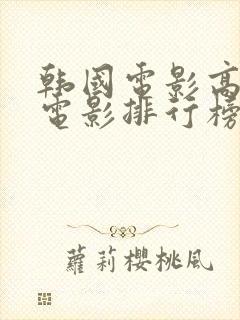 韩國電影高
電影排行榜
蘿莉櫻桃風